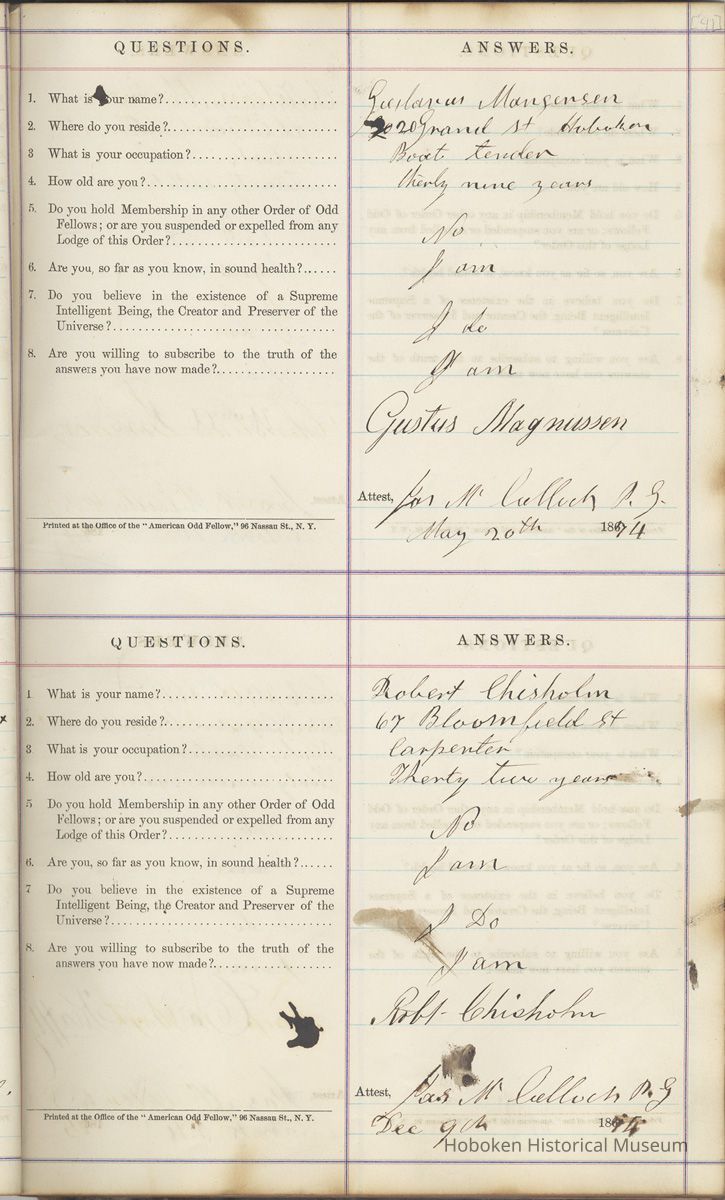 [41]
QUESTIONS. ANSWERS.
1. What is your name? Gustavus Mangensen
2. Where do you reside? 20 Grand St Hoboken
3 What is your occupation? Boat tender
4. How old are you? therty nine years
5. Do you hold Membership in any other Order of Odd
Fellows; or are you suspended or expelled from any
Lodge of this Order? No
6. Are you, so far as you know, in sound health? I am
7. Do you believe in the existence of a Supreme
Intelligent Being, the Creator and Preserver of the
Universe? I do
8. Are you willing to subscribe to the truth of the
answers you have now made? I am
Gustus Magnussen
Attest, Jas Mc Culloch P. G.
Printed at the Office of the "American Odd Fellow," 96 Nassau St., N. Y.
May 20th 1874
QUESTIONS. ANSWERS.
1 What is your name? Robert Chisholm
2. Where do you reside? 67 Bloomfield St
3 What is your occupation? Carpenter
4. How old are you? Therty two years
5 Do you hold Membership in any other Order of Odd
Fellows; or are you suspended or expelled from any
Lodge of this Order? No
6. Are you, so far as you know, in sound health? I am
7 Do you believe in the existence of a Supreme
Intelligent Being, the Creator and Preserver of the
Universe? I Do
8. Are you willing to subscribe to the truth of the
answers you have now made? I am
Robt Chisholm
Attest, Jas Mc Culloch P. G
Printed at the Office of the "American Odd Fellow," 96 Nassau St., N. Y.
Dec 9th 1874
Hoboken Historical Museum